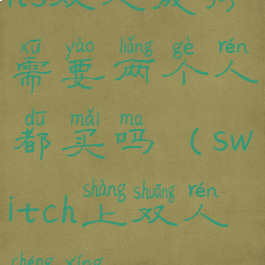 xū yào liǎng gè rén
需要两个人
dū mǎi ma
都买吗（sw
shàng shuāng rén
itch上双人
chéng xíng